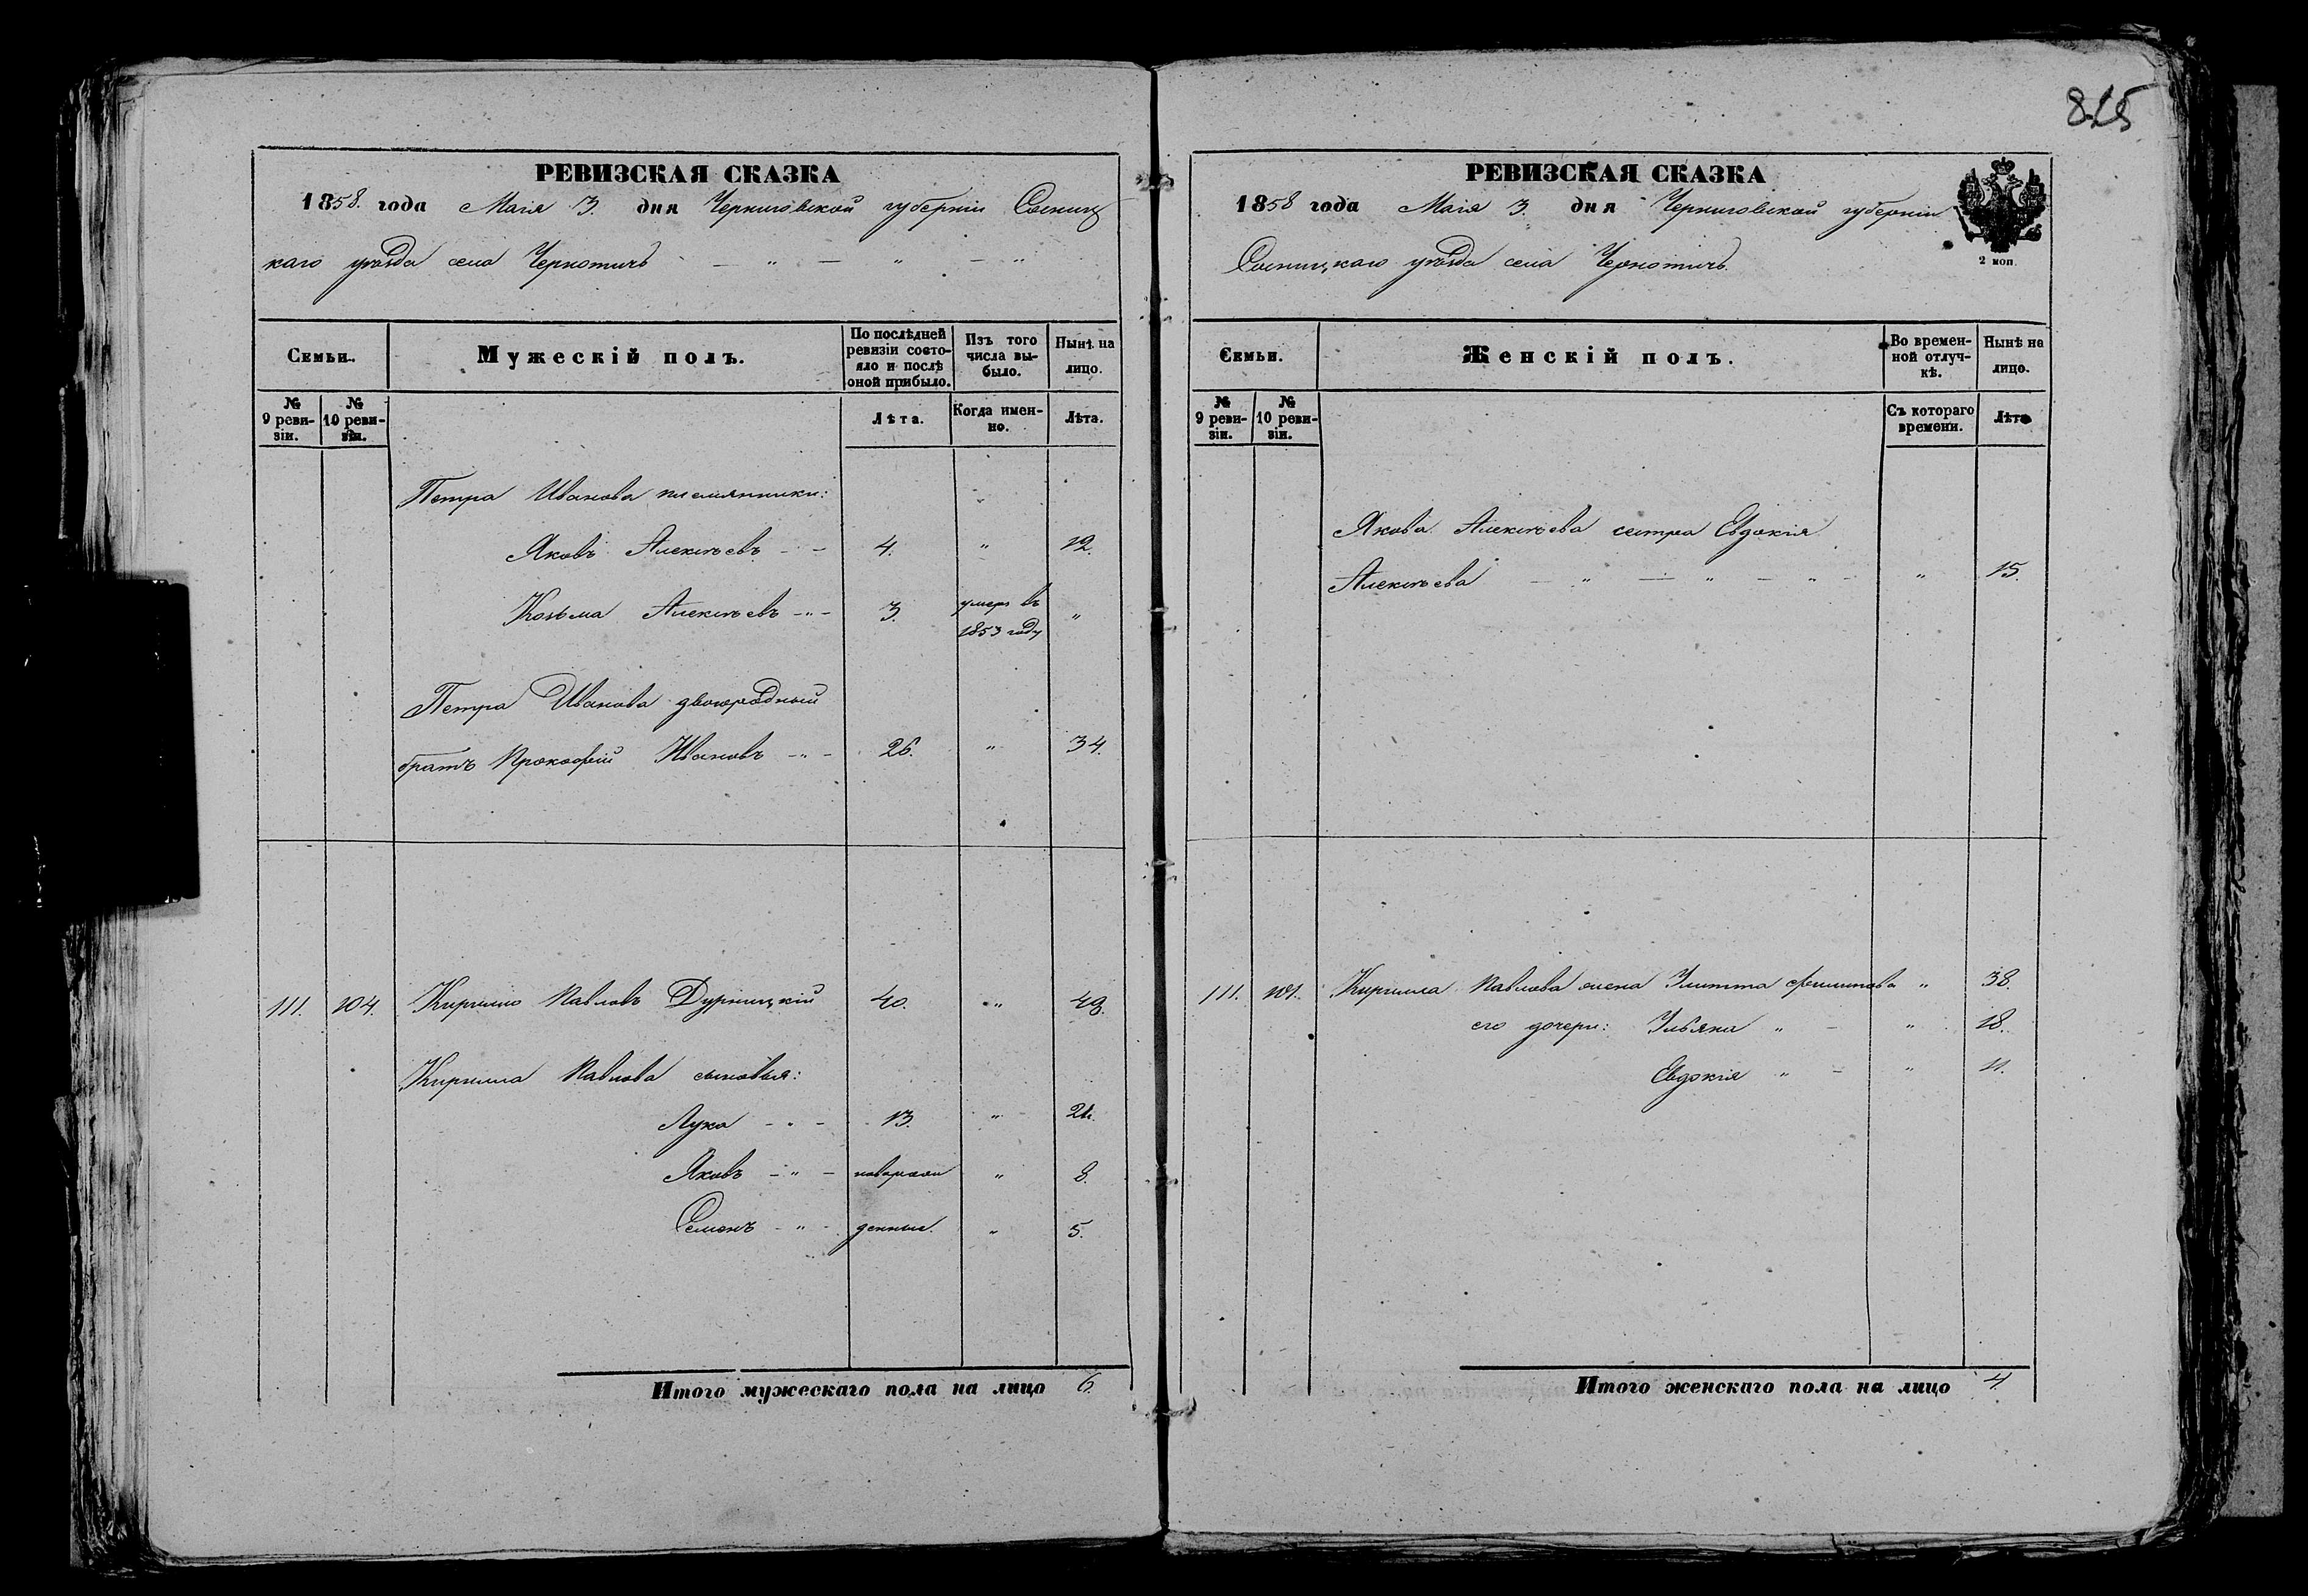 815
РЕВИЗСКАЯ СКАЗКА
1858. года Маія 3. дня Черниговской губерніи Сосниц
каго уѣзда села Чернотичъ — " — " — "
Семьи.
Мужескій полъ.
По послѣдней ревизіи состояло и послѣ оной прибыло.
Изъ того числа выбыло.
Нынѣ на лицо.
№ 9 ревизіи.
№ 10 ревизіи.
Лѣта.
Когда именно.
Лѣта.
Петра Иванова племянники:
Яковъ Алексѣевъ - - 4. " 12.
Козьма Алексѣевъ - " - 3. умеръ въ 1853 году "
Петра Иванова двоюродный
братъ Прокофій Ивановъ - " - 26. " 34.
111. 104. Кирилло Павловъ Дурницкій 40. " 48.
Кирилла Павлова сыновья:
Лука - " - 13. " 21.
Яковъ - " - новорож " 8.
Семенъ - " - денные. " 5.
Итого мужескаго пола на лицо 6.
РЕВИЗСКАЯ СКАЗКА
1858 года Маія 3. дня Черниговской губерніи
Сосницкаго уѣзда села Чернотичъ.
2 коп.
Семьи.
Женскій полъ.
Во временной отлучкѣ.
Нынѣ на лицо.
№ 9 ревизіи.
№ 10 ревизіи.
Съ котораго времени.
Лѣта
Якова Алексѣева сестра Евдокія
Алексѣева — " — " — " - " 15.
111. 104. Кирилла Павлова жена Улитта " 38.
его дочери: Ульяна " - " 18.
Евдокія " - " 11.
Итого женскаго пола на лицо 4.